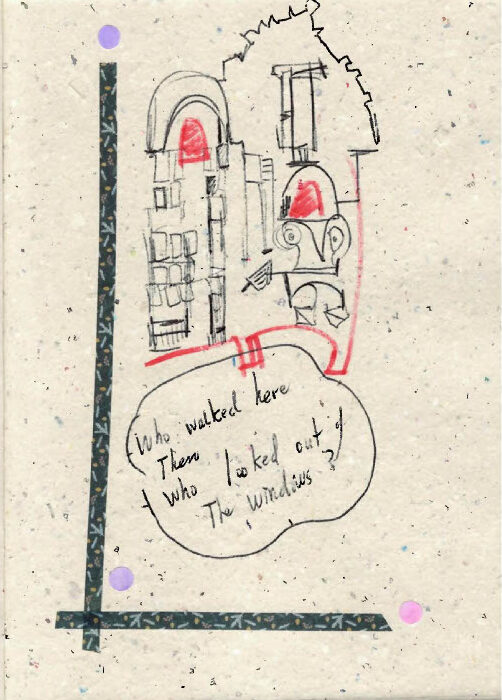 Who walked here
Then
Who looked out
The windows?